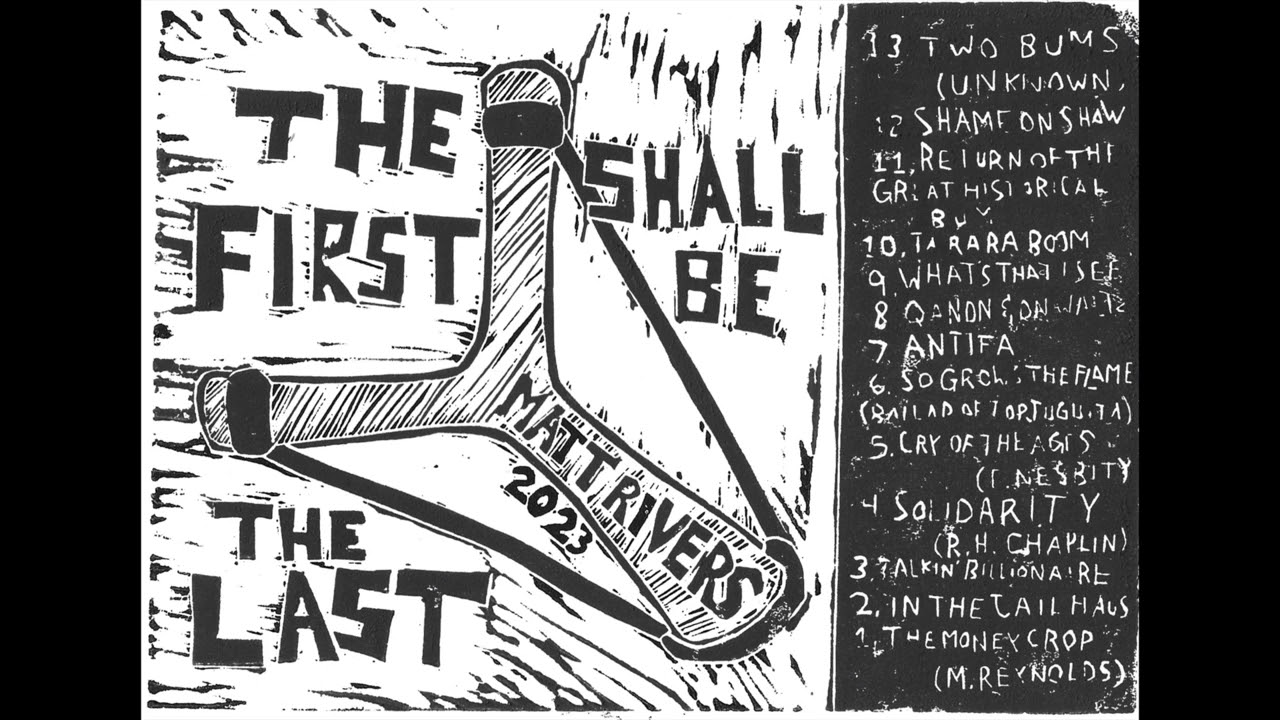 THE
FIRST
SHALL
BE
THE
LAST
MATT RIVERS
2023
13 TWO BUMS
(UNKNOWN,
12 SHAME ON SHAW
11, RETURN OF THE
GREAT HISTORICAL
BUM
10, TA RARA BOOM
9. WHATS THAT I SEE
8 QANON & ON WALTZ
7 ANTIFA
6. SO GROWS THE FLAME
(BALLAD OF TORTUGUITA)
5. CRY OF THE AGES
NESBITY
4 SOLIDARITY
(R.H. CHAPLIN)
3. TALKIN' BILLIONAIRE
2, IN THE JAIL HAUS
1, THE MONEY CROP
(M. REYNOLDS)